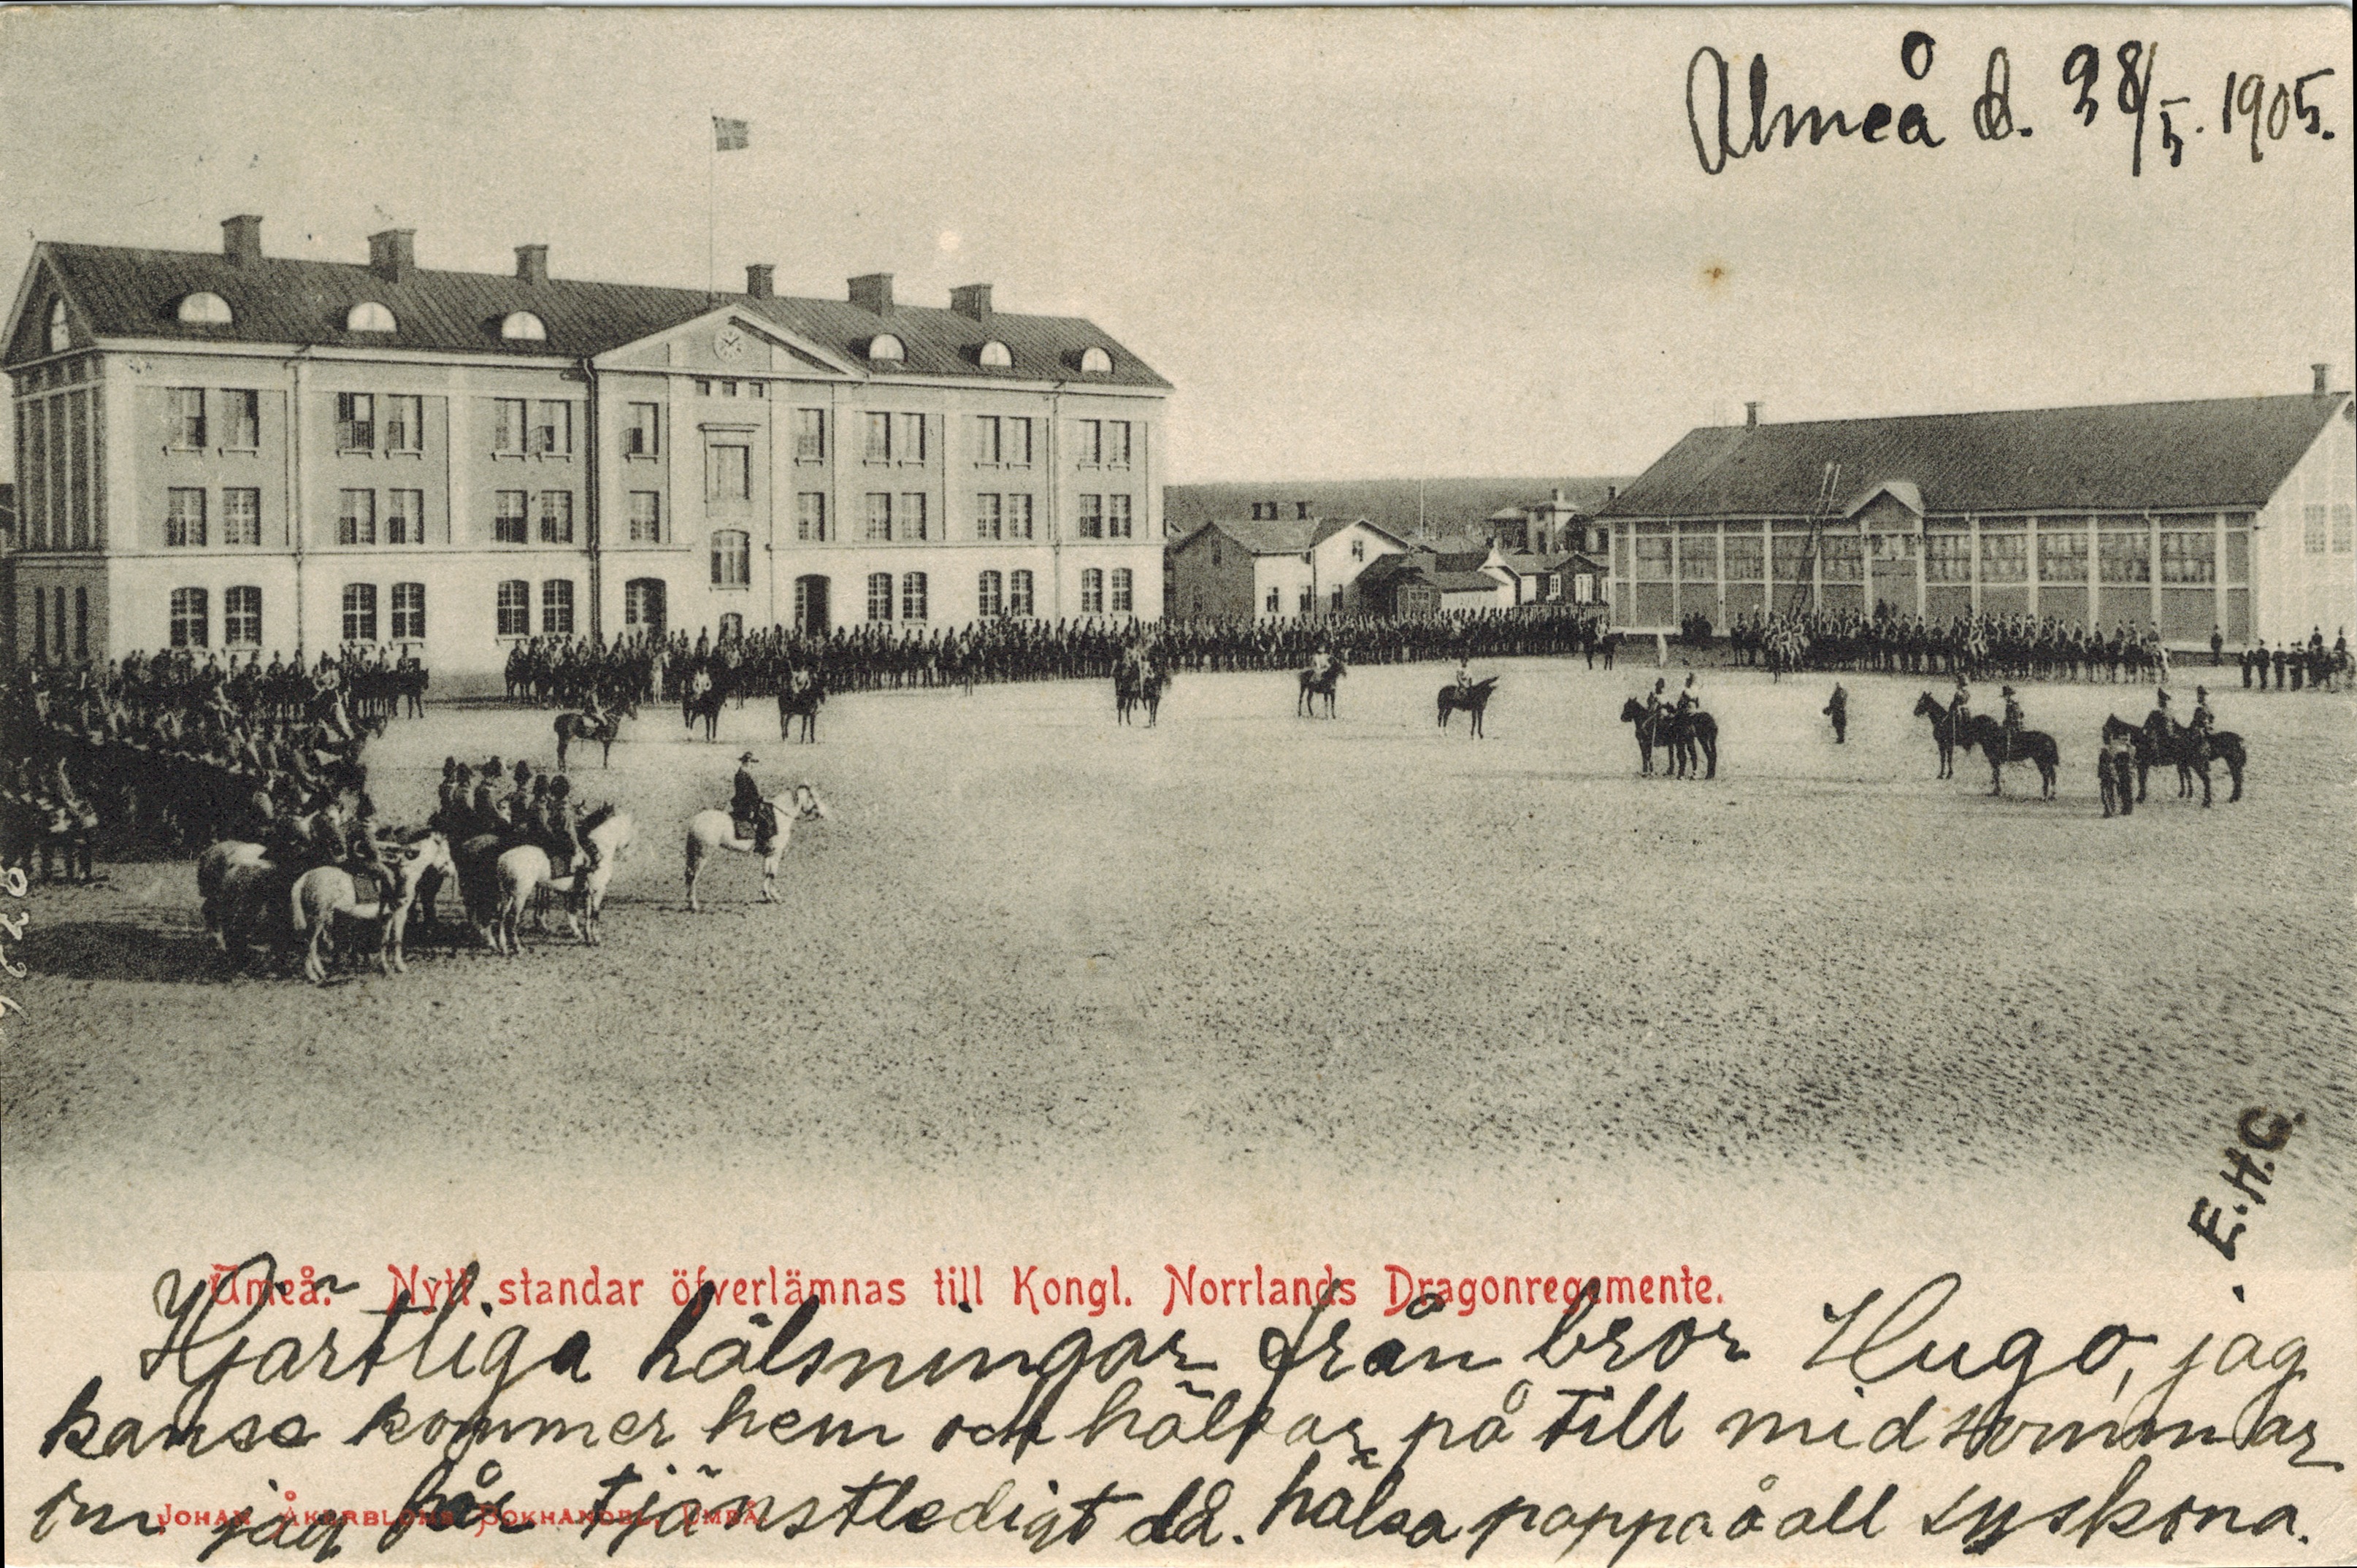 Umeå d. 28/5. 1905.
E.H.G.
Umeå. Nytt standar öfverlämnas till Kongl. Norrlands Dragonregemente.
Hjärtliga hälsningar från bror Hugo, jag
kanse kommer hem och hälsar på till midsommar
om jag får tjänstledigt då. hälsa pappa å all syskona.
JOHAN ÅKERBLOMS BOKHANDEL, UMEÅ.